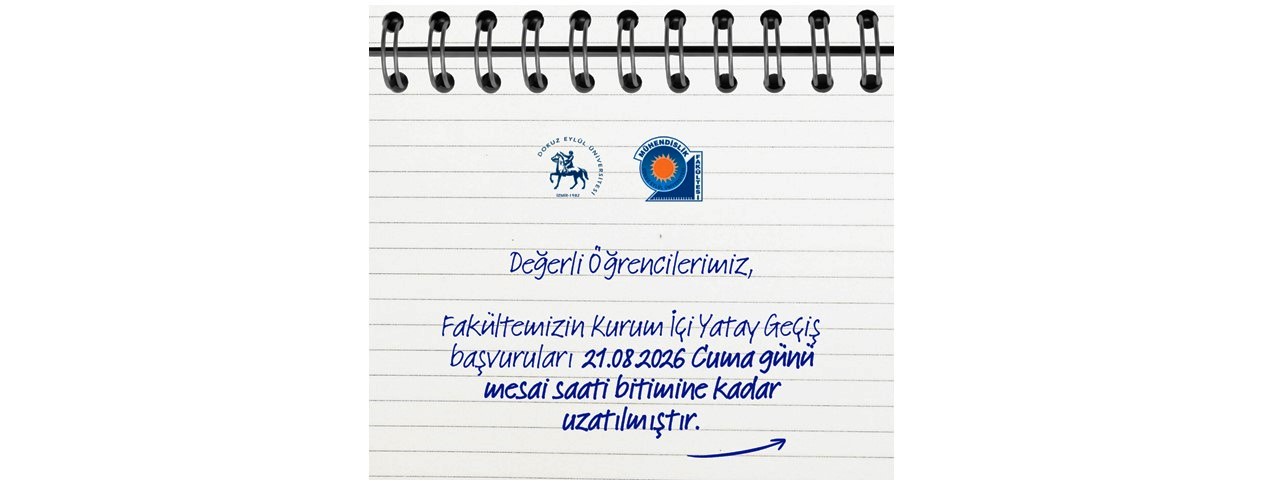 DOKUZ EYLÜL ÜNİVERSİTESİ
İZMİR-1982
MÜHENDİSLİK
FAKÜLTESİ
Değerli Öğrencilerimiz,
Fakültemizin Kurum İçi Yatay Geçiş
başvuruları 21.08.2026 Cuma günü
mesai saati bitimine kadar
uzatılmıştır.